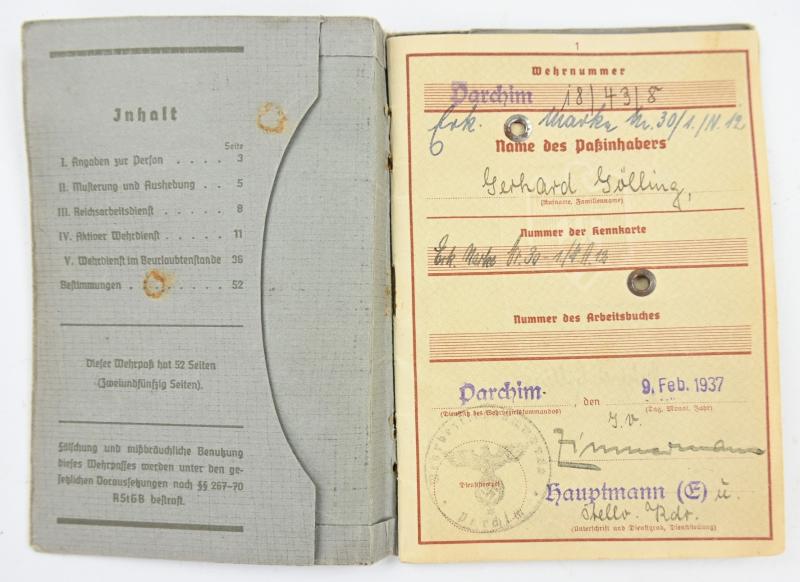 Inhalt
Seite
I. Angaben zur Person . . . . 3
II. Musterung und Aushebung . . 5
III. Reichsarbeitsdienst . . . . 8
IV. Aktiver Wehrdienst . . . . . 11
V. Wehrdienst im Beurlaubtenstande 36
Bestimmungen . . . . . . . 52
Dieser Wehrpaß hat 52 Seiten
(Zweiundfünfzig Seiten).
Fälschung und mißbräuchliche Benutzung
dieses Wehrpasses werden unter den ge-
setzlichen Voraussetzungen nach §§ 267-70
RStGB bestraft.
1
Wehrnummer
Parchim 18/43/8
Erk. Marke Nr. 30/1./N. 12
Name des Paßinhabers
Gerhard Gölling,
(Rufname, Familienname)
Nummer der Kennkarte
Erk. Marke Nr. 30-1/
Nummer des Arbeitsbuches
Parchim, den 9. Feb. 1937
(Dienstsitz des Wehrbezirkskommandos) (Tag, Monat, Jahr)
I.V.
Zimmermann
Dienststempel
Hauptmann (E) u.
Stellv. Kdr.
(Unterschrift und Dienstgrad, Dienststellung)